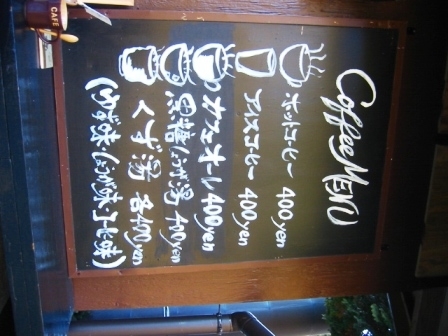 Coffee MENU
ホットコーヒー 400yen
アイスコーヒー 400yen
カフェオーレ 400yen
黒糖しょうが湯 400yen
くず湯 各400yen
(ゆず味 しょうが味 コーヒー味)
CAFE